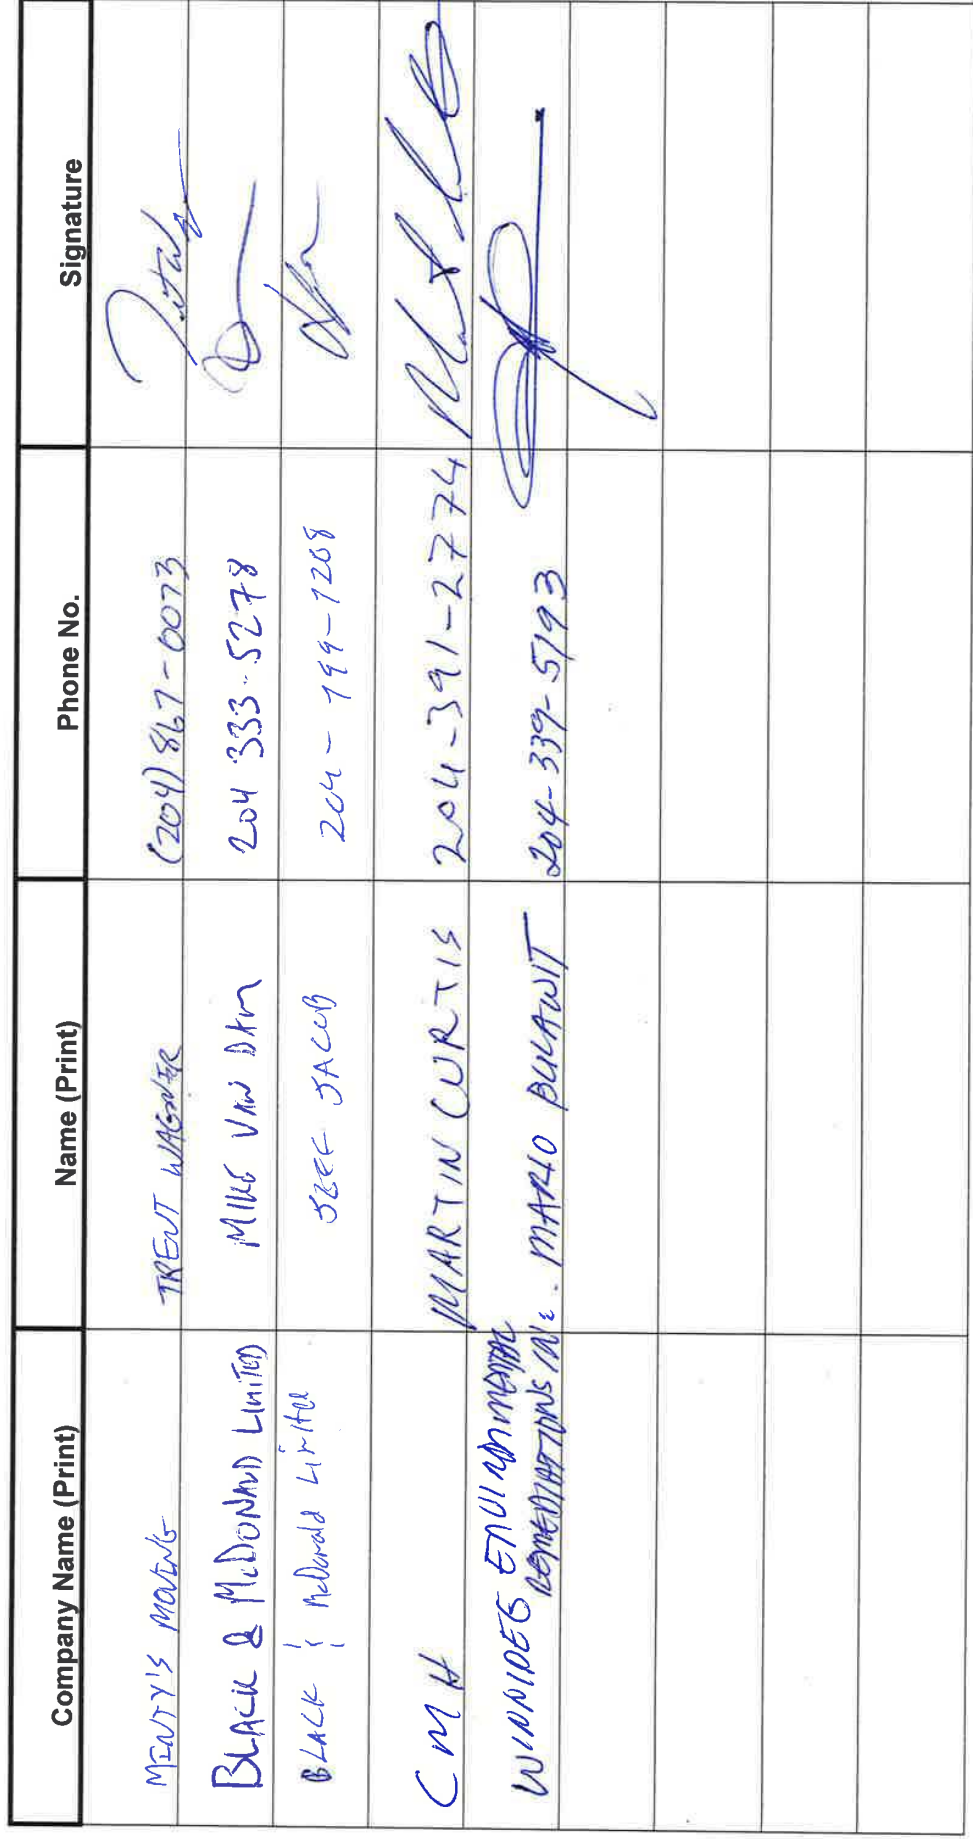 Company Name (Print) Name (Print) Phone No. Signature
MINTY'S MOVING TRENT WAGNER (204) 867-0073
BLACK & McDONALD LIMITED MIKE VAN DAM 204 333-5278
BLACK & McDonald Limited JACOB 204-799-7208
CMH MARTIN CURTIS 204-391-2774
WINNIPEG ENVIRONMENTAL
REMEDIATIONS INC. MARIO BULAWIT 204-339-5193